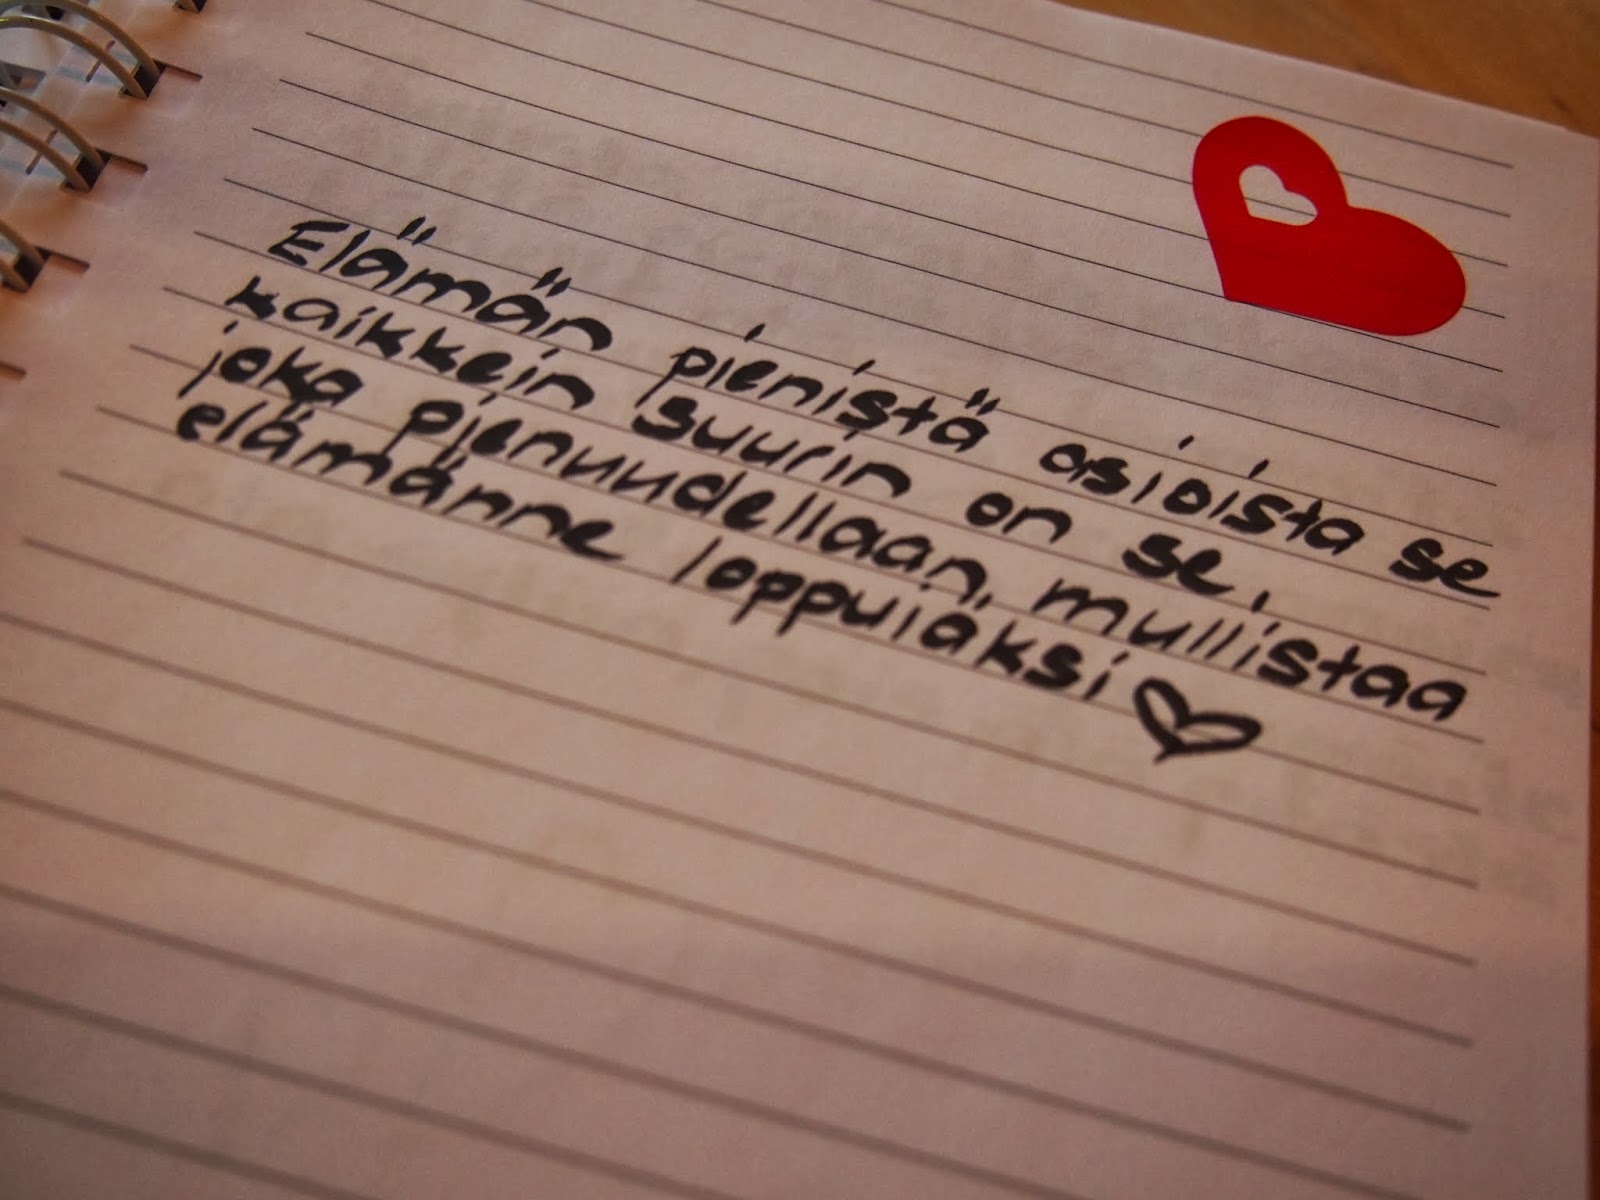 Elämän pienistä asioista se
kaikkein suurin on se,
joka pienuudellaan, mullistaa
elämänne loppuiäksi